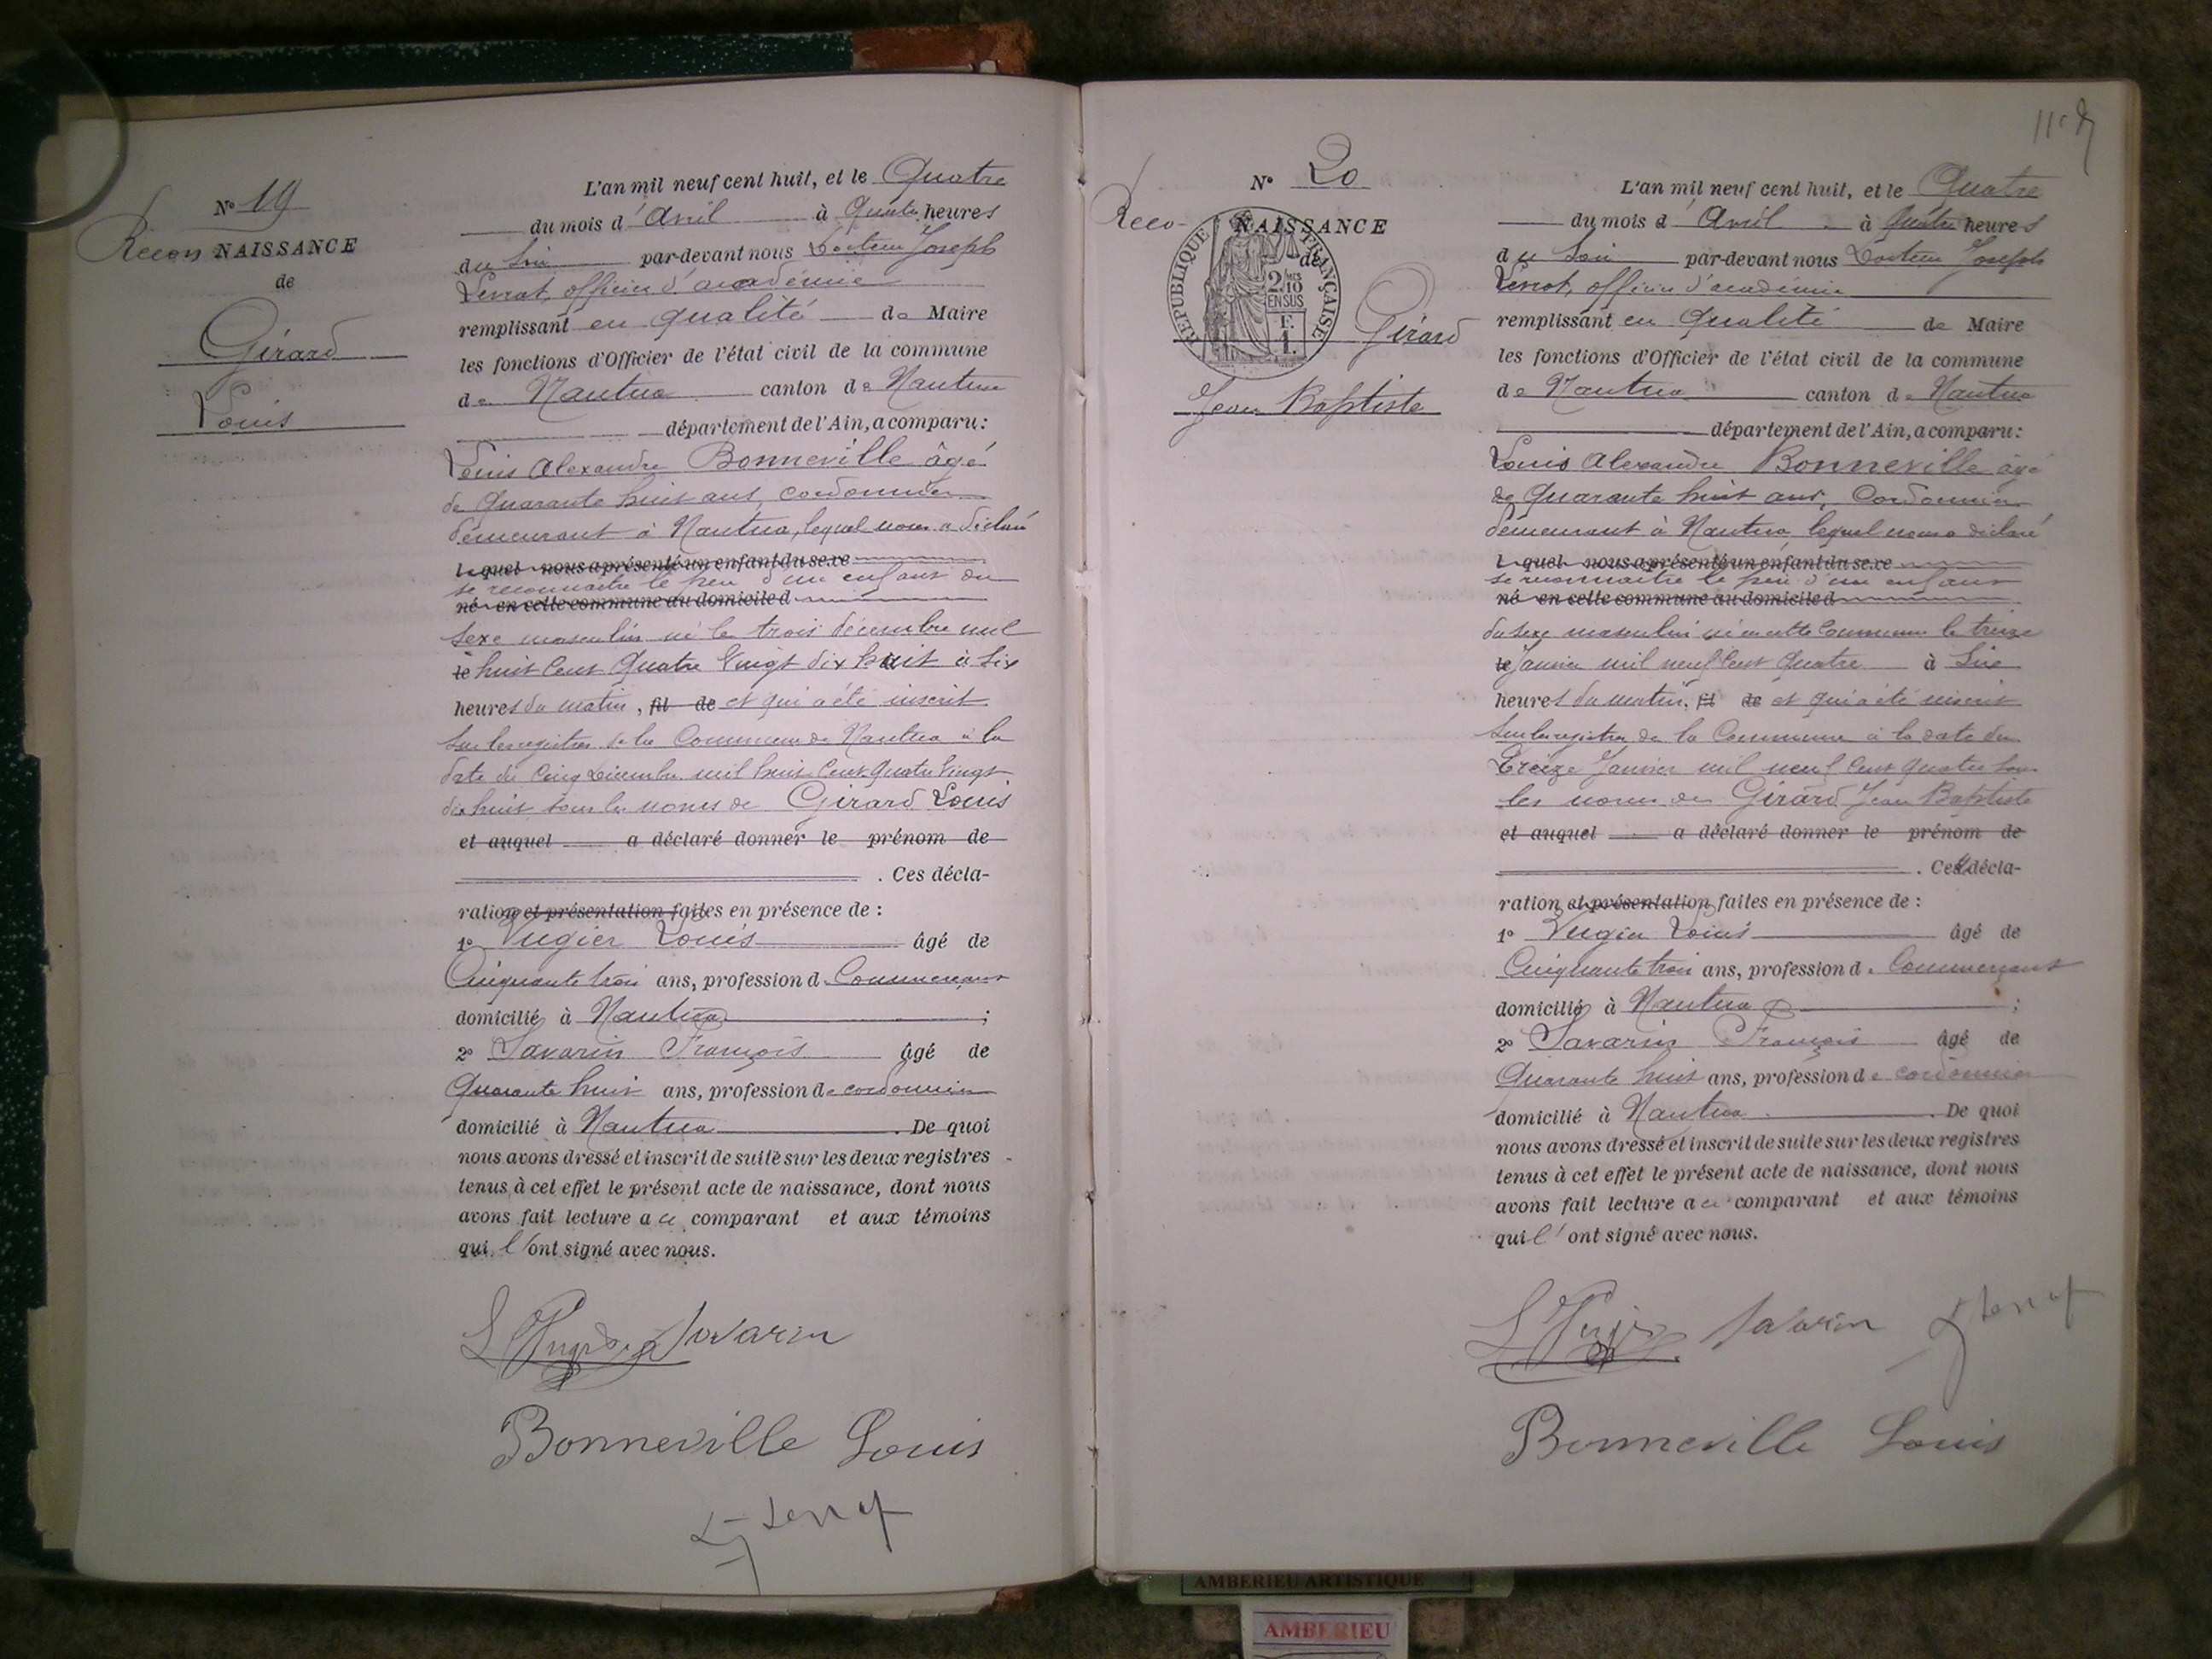 N° 19
Recon NAISSANCE
de
Girard
Louis
L'an mil neuf cent huit, et le Quatre
du mois d'Avril à Quatre heures
du soir par-devant nous Docteur Joseph
officier d'académie
remplissant en qualité de Maire
les fonctions d'Officier de l'état civil de la commune
de Nantua canton de Nantua
département de l'Ain, a comparu:
Louis Alexandre Bonneville âgé
de Quarante huit ans, cordonnier
demeurant à Nantua, lequel nous a déclaré
lequel nous a présenté un enfant du sexe
se reconnaitre le père d'un enfant du
né en cette commune au domicile d
sexe masculin né le trois décembre mil
le huit cent Quatre Vingt dix huit à six
heures du matin, fil de et qui a été inscrit
sur les registres de la Commune de Nantua à la
date du cinq Décembre mil huit cent quatre vingt
dix huit sous les noms de Girard Louis
et auquel a déclaré donner le prénom de
. Ces décla-
ration et présentation faites en présence de :
1° Vugier Louis âgé de
Cinquante trois ans, profession de Commerçant
domicilié à Nantua ;
2° Savarin François âgé de
Quarante huit ans, profession de cordonnier
domicilié à Nantua . De quoi
nous avons dressé et inscrit de suite sur les deux registres
tenus à cet effet le présent acte de naissance, dont nous
avons fait lecture au comparant et aux témoins
qui l'ont signé avec nous.
Savarin
Bonneville Louis
N° 20
Reco- NAISSANCE
de
REPUBLIQUE FRANÇAISE
2/10
EN SUS
Girard
Jean Baptiste
L'an mil neuf cent huit, et le Quatre
du mois d'Avril à Quatre heures
du soir par-devant nous Docteur Joseph
officier d'académie
remplissant en Qualité de Maire
les fonctions d'Officier de l'état civil de la commune
de Nantua canton de Nantua
département de l'Ain, a comparu:
Louis Alexandre Bonneville âgé
de Quarante huit ans, Cordonnier
demeurant à Nantua, lequel nous a déclaré
lequel nous a présenté un enfant du sexe
se reconnaitre le père d'un enfant
né en cette commune au domicile d
du sexe masculin né en cette Commune le treize
le Janvier mil neuf cent Quatre à Six
heures du matin, fil de et qui a été inscrit
sur les registres de la Commune à la date du
Treize Janvier mil neuf cent quatre sous
les noms de Girard Jean Baptiste
et auquel a déclaré donner le prénom de
. Ces décla-
ration et présentation faites en présence de :
1° Vugier Louis âgé de
Cinquante trois ans, profession de Commerçant
domicilié à Nantua ;
2° Savarin François âgé de
Quarante huit ans, profession de cordonnier
domicilié à Nantua . De quoi
nous avons dressé et inscrit de suite sur les deux registres
tenus à cet effet le présent acte de naissance, dont nous
avons fait lecture au comparant et aux témoins
qui l'ont signé avec nous.
Savarin
Bonneville Louis
AMBERIEU ARTISTIQUE
AMBERIEU